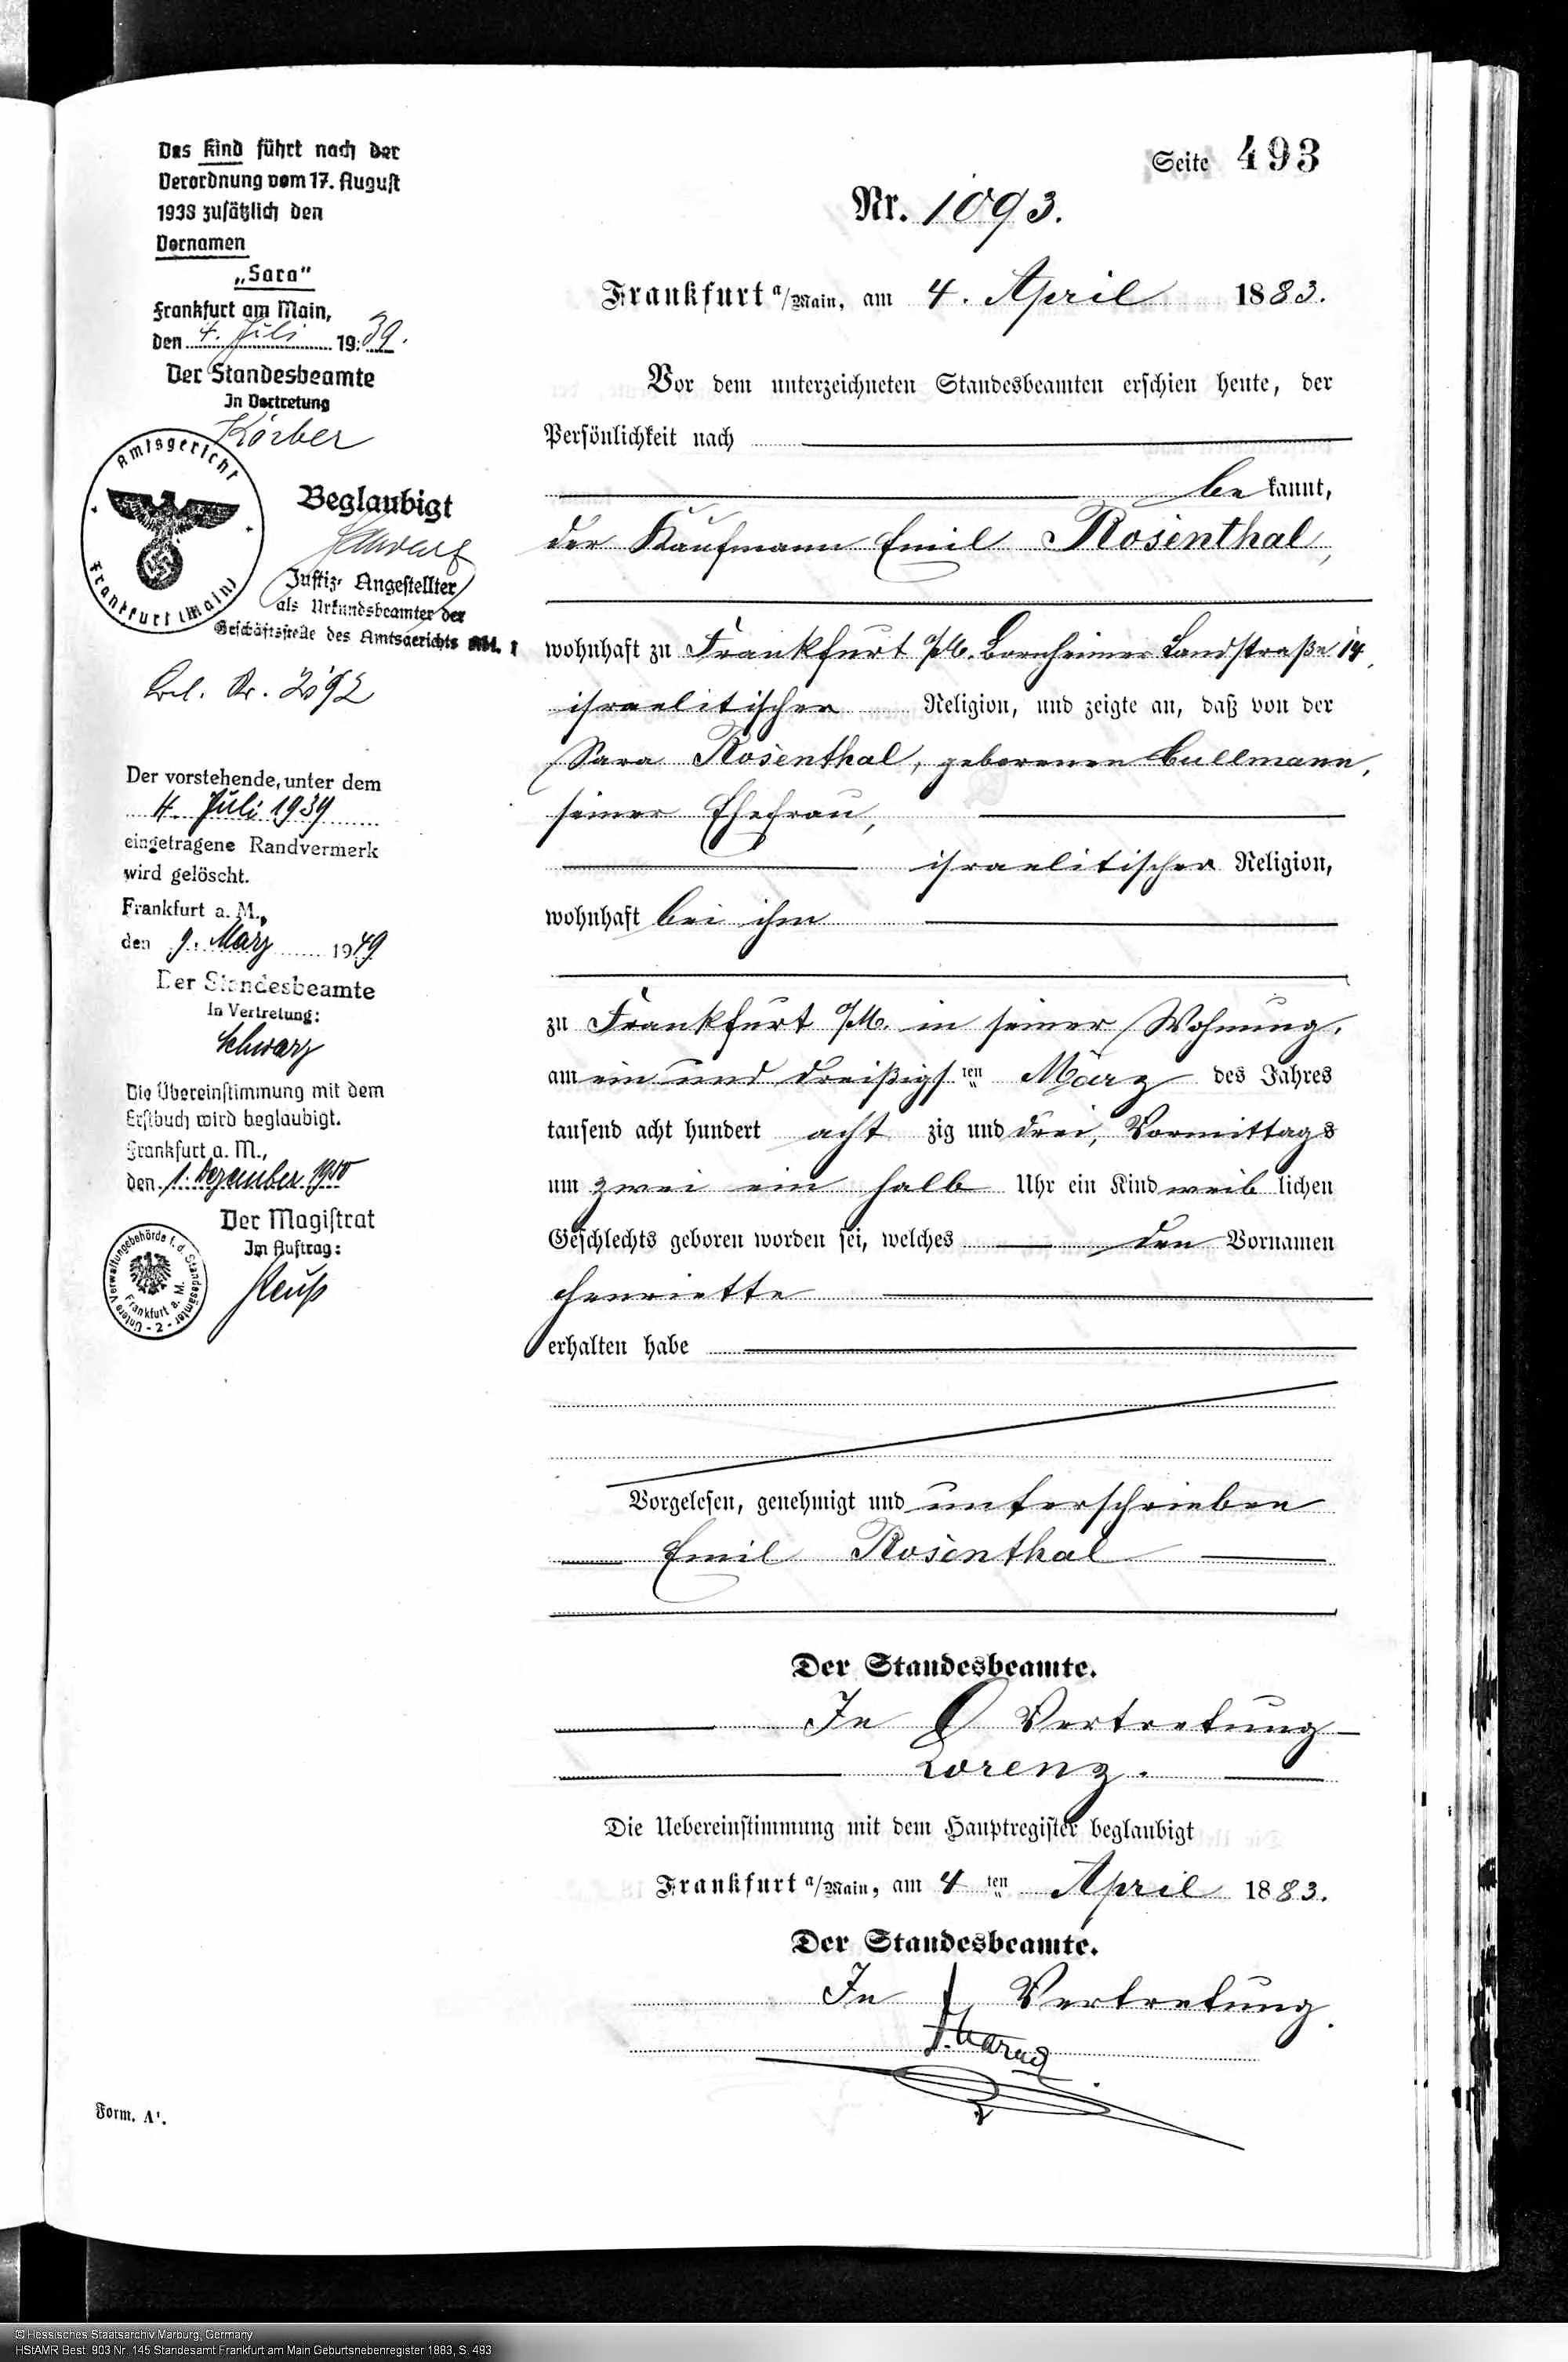 Das Kind führt nach der
Verordnung vom 17. August
1938 zusätzlich den
Vornamen
„Sara"
Frankfurt am Main,
den 4. Juli 1939.
Der Standesbeamte
In Vertretung
Körber
Amtsgericht
Frankfurt (Main)
Beglaubigt
Justiz-Angestellter
als Urkundsbeamter der
Geschäftsstelle des Amtsgerichts Abt. 1
Der vorstehende, unter dem
4. Juli 1939
eingetragene Randvermerk
wird gelöscht.
Frankfurt a. M.,
den 9. März 1949
Der Standesbeamte
In Vertretung:
Schwarz
Die Übereinstimmung mit dem
Erstbuch wird beglaubigt.
Frankfurt a. M.,
den 1. Dezember 1950
Der Magistrat
Im Auftrag:
Untere Verwaltungsbehörde f. d. Standesämter
Frankfurt a. M.
- 2 -
Form. A¹.
Seite 493
Nr. 1093.
Frankfurt a/Main, am 4. April 1883.
Vor dem unterzeichneten Standesbeamten erschien heute, der
Persönlichkeit nach
be kannt,
der Kaufmann Emil Rosenthal,
wohnhaft zu Frankfurt a/M. Bornheimer Landstraße 14,
israelitischer Religion, und zeigte an, daß von der
Sara Rosenthal, geborenen Cullmann,
seiner Ehefrau,
israelitischer Religion,
wohnhaft bei ihm
zu Frankfurt a/M. in seiner Wohnung,
am ein und dreißigsten März des Jahres
tausend acht hundert acht zig und drei, Vormittags
um zwei ein halb Uhr ein Kind weib lichen
Geschlechts geboren worden sei, welches den Vornamen
Henriette
erhalten habe
Vorgelesen, genehmigt und unterschrieben
Emil Rosenthal
Der Standesbeamte.
In Vertretung
Lorenz.
Die Uebereinstimmung mit dem Hauptregister beglaubigt
Frankfurt a/Main, am 4 ten April 1883.
Der Standesbeamte.
In Vertretung.
© Hessisches Staatsarchiv Marburg, Germany
HStAMR Best. 903 Nr. 145 Standesamt Frankfurt am Main Geburtsnebenregister 1883, S. 493